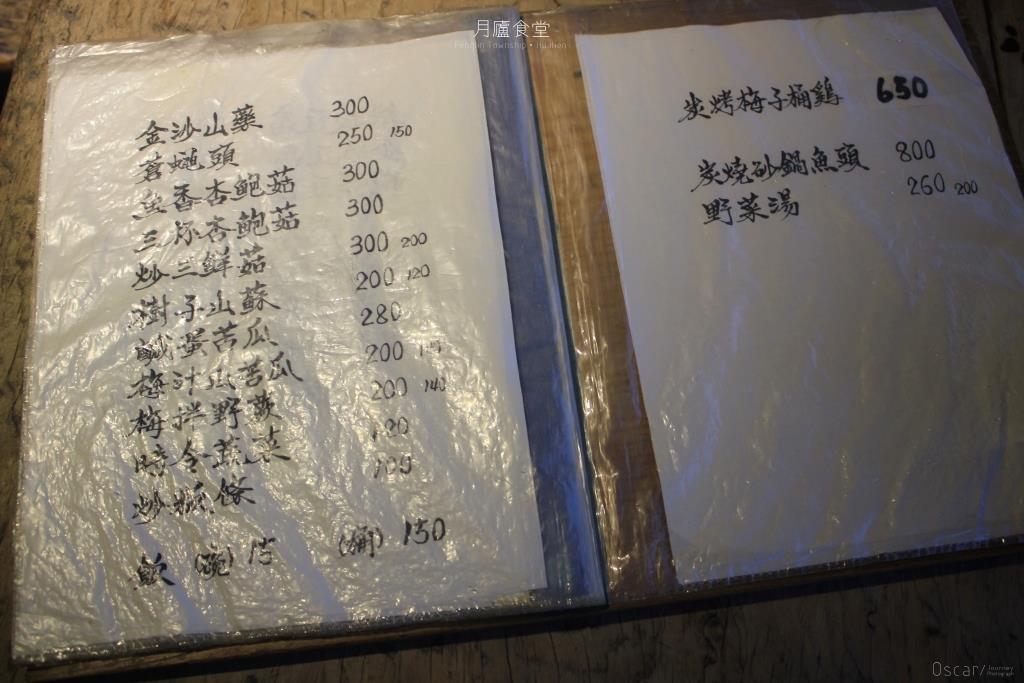 月廬食堂
Fenglin Township • Hualien
金沙山藥 300
蒼蠅頭 250 150
魚香杏鮑菇 300
三杯杏鮑菇 300
炒三鮮菇 300 200
樹子山蘇 200 120
鹹蛋苦瓜 280
梅汁山苦瓜 200
梅拌野蕨 200 140
時令蔬菜 120
炒 100
飯 (碗) 15 (鍋) 150
炭烤梅子桶鷄 650
炭燒砂鍋魚頭 800
野菜湯 260 200
Oscar/ Journey Photograph